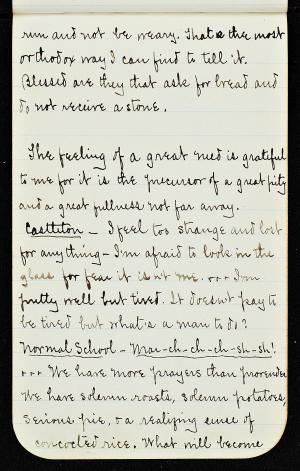 run and not be weary. That is the most
orthodox way I can find to tell it.
Blessed are they that ask for bread and
do not receive a stone.
The feeling of a great need is grateful
to me for it is the precursor of a great pity
and a great fullness not far away.
Castleton – I feel too strange and lost
for any thing – I'm afraid to look in the
glass for fear it isn't me. ... I'm
pretty well but tired. It doesn't pay to
be tired but what's a man to do?
Normal School – Mar-ch-ch-ch-sh-sh!
... We have more prayers than provender
We have solemn roasts, solemn potatoes,
serious pie, & a realizing sense of
concocted rice. What will become